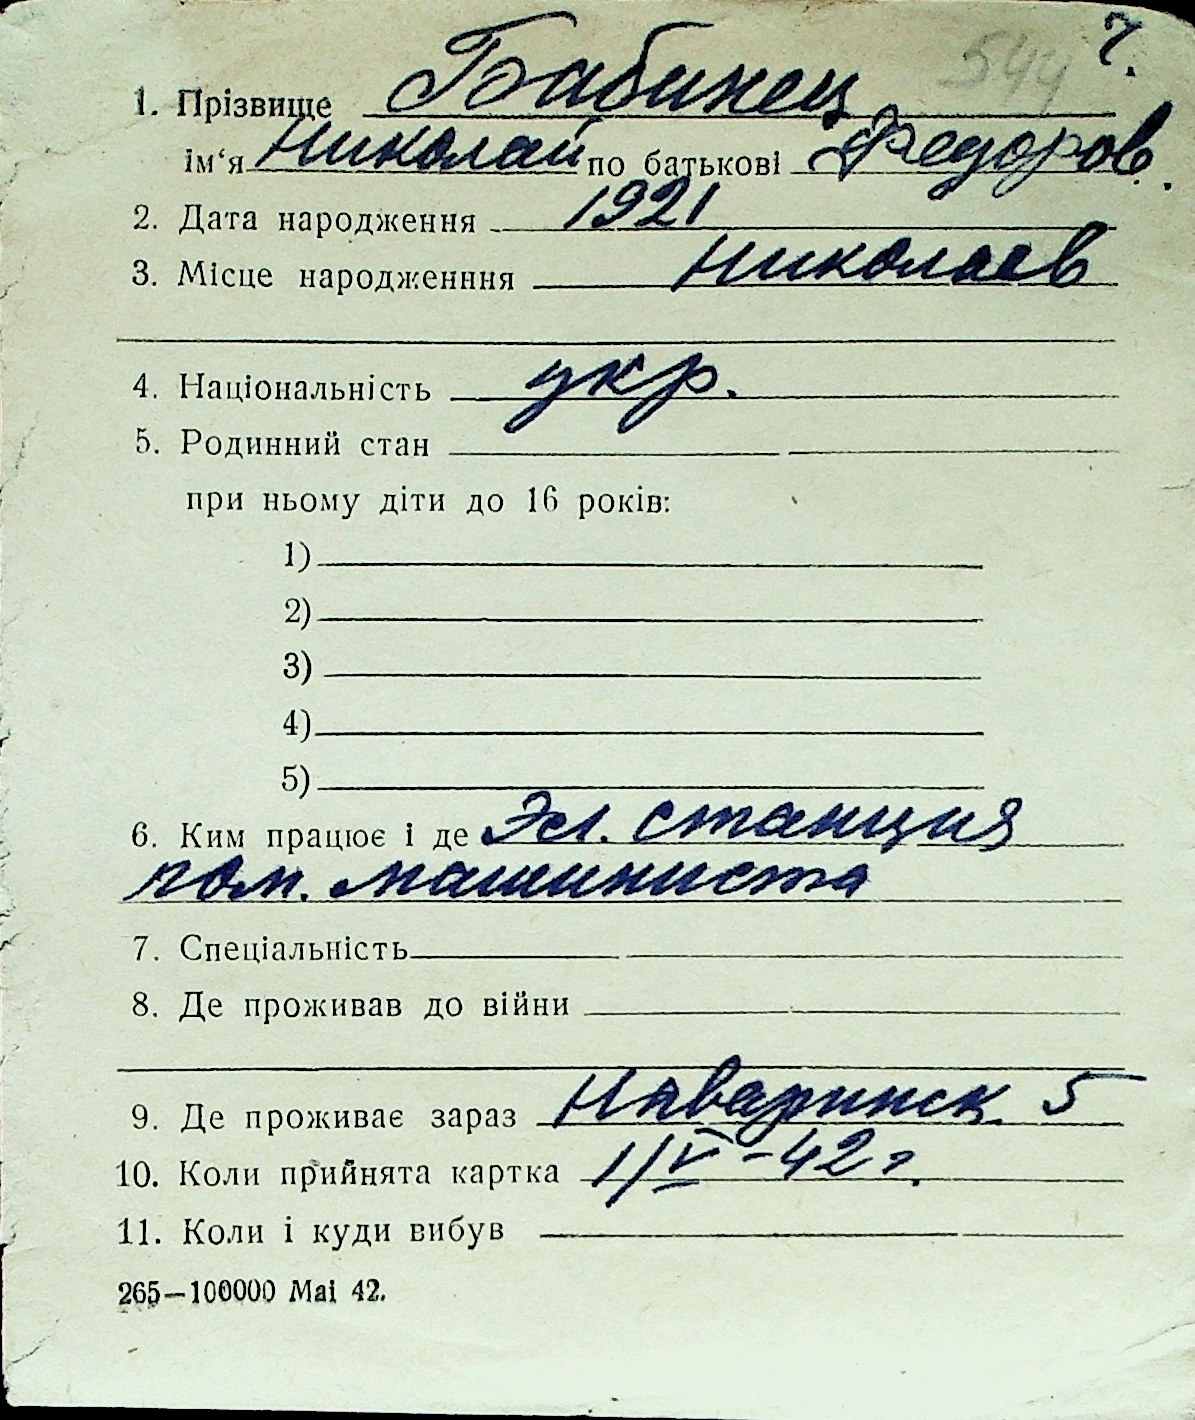 544 7.
1. Прізвище Бабинец
ім‘я Николай по батькові Федоров.
2. Дата народження 1921
3. Місце народженння Николаев
4. Національність укр.
5. Родинний стан
при ньому діти до 16 років:
1)
2)
3)
4)
5)
6. Ким працює і де Эл. станция
пом. машиниста
7. Спеціальність
8. Де проживав до війни
9. Де проживає зараз Наваринск. 5
10. Коли прийнята картка 1/V-42 г.
11. Коли і куди вибув
265—100000 Mai 42.